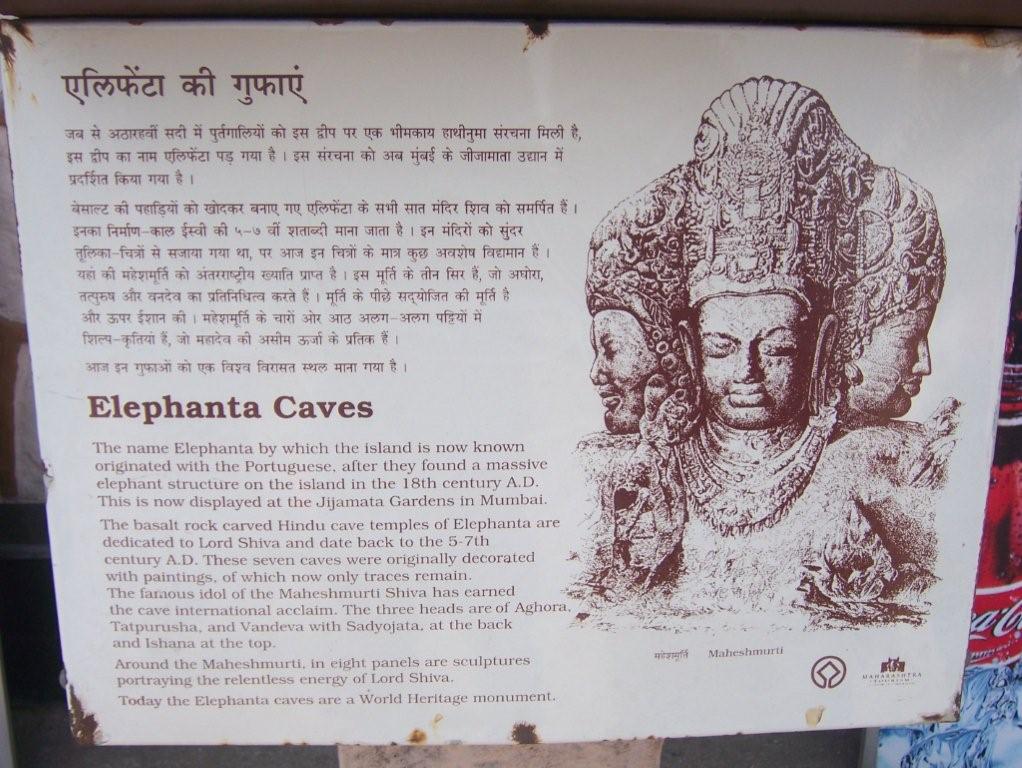 एलिफेंटा की गुफाएं
जब से अठारहवीं सदी में पुर्तगालियों को इस द्वीप पर एक भीमकाय हाथीनुमा संरचना मिली है,
इस द्वीप का नाम एलिफेंटा पड़ गया है । इस संरचना को अब मुंबई के जीजामाता उद्यान में
प्रदर्शित किया गया है ।
बेसाल्ट की पहाड़ियों को खोदकर बनाए गए एलिफेंटा के सभी सात मंदिर शिव को समर्पित हैं ।
इनका निर्माण-काल ईस्वी की ५-७ वीं शताब्दी माना जाता है । इन मंदिरों को सुंदर
तुलिका-चित्रों से सजाया गया था, पर आज इन चित्रों के मात्र कुछ अवशेष विद्यमान हैं ।
यहां की महेशमूर्ति को अंतरराष्ट्रीय ख्याति प्राप्त है । इस मूर्ति के तीन सिर हैं, जो अघोरा,
तत्पुरुष और वनदेव का प्रतिनिधित्व करते हैं । मूर्ति के पीछे सद्योजित की मूर्ति है
और ऊपर ईशान की । महेशमूर्ति के चारों ओर आठ अलग-अलग पट्टियों में
शिल्प-कृतियां हैं, जो महादेव की असीम ऊर्जा के प्रतिक हैं ।
आज इन गुफाओं को एक विश्व विरासत स्थल माना गया है ।
Elephanta Caves
The name Elephanta by which the island is now known
originated with the Portuguese, after they found a massive
elephant structure on the island in the 18th century A.D.
This is now displayed at the Jijamata Gardens in Mumbai.
The basalt rock carved Hindu cave temples of Elephanta are
dedicated to Lord Shiva and date back to the 5-7th
century A.D. These seven caves were originally decorated
with paintings, of which now only traces remain.
The famous idol of the Maheshmurti Shiva has earned
the cave international acclaim. The three heads are of Aghora,
Tatpurusha, and Vandeva with Sadyojata, at the back
and Ishana at the top.
Around the Maheshmurti, in eight panels are sculptures
portraying the relentless energy of Lord Shiva.
Today the Elephanta caves are a World Heritage monument.
महेशमूर्ति Maheshmurti
MAHARASHTRA
TOURISM